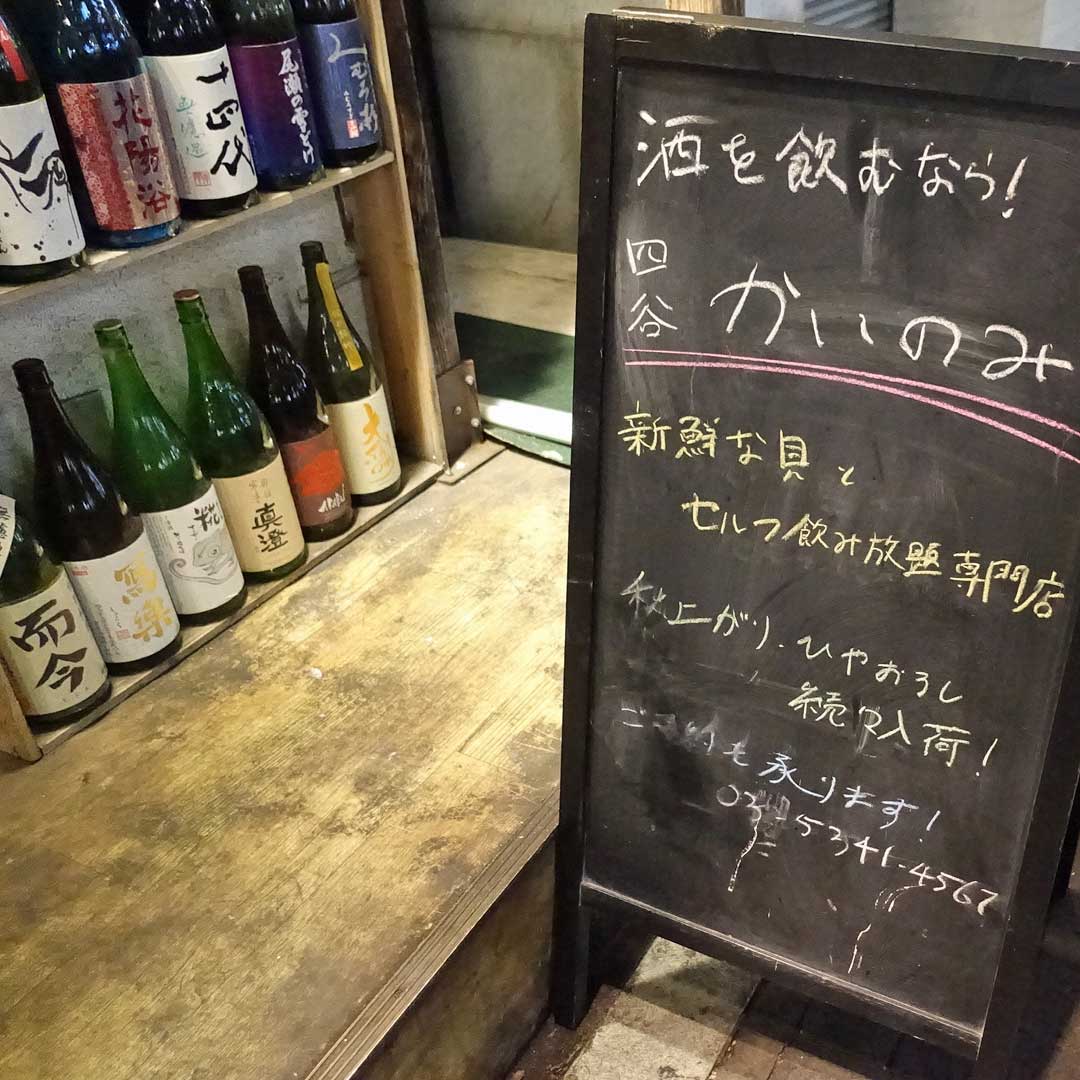 花陽浴
十四代
尾瀬の雪どけ
みむろ杉
而今
寫樂
糀
真澄
酒を飲むなら!
四谷 かいのみ
新鮮な貝と
セルフ飲み放題専門店
秋上がり・ひやおろし
続々入荷!
ご予約も承ります!
03-5341-4567